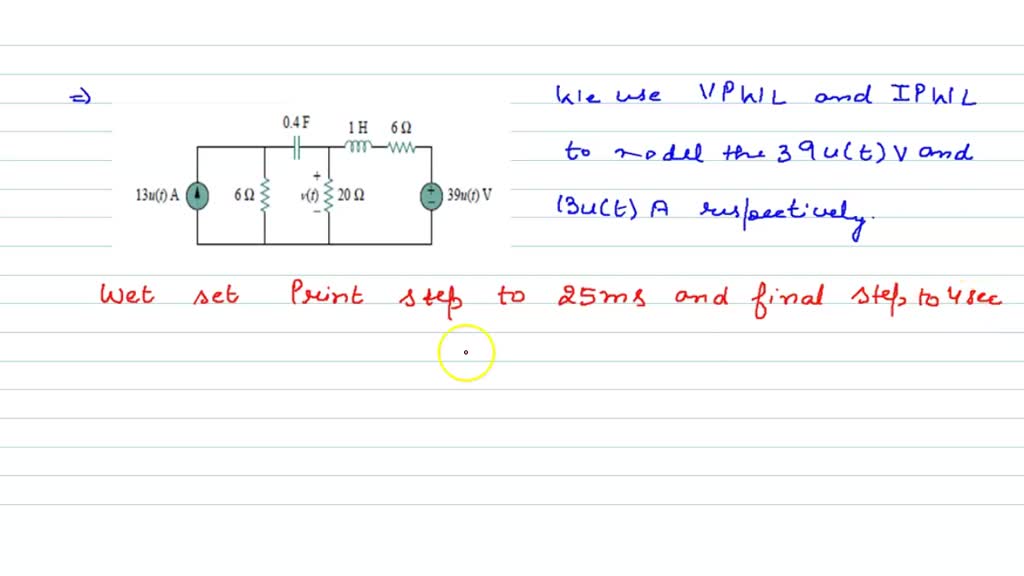 => We use VPWL and IPWL
to model the 39u(t) V and
13u(t) A respectively.
0.4 F
1 H 6 Ω
13u(t) A 6 Ω + v(t) − 20 Ω + − 39u(t) V
Wet set Print step to 25ms and final step to 4 sec